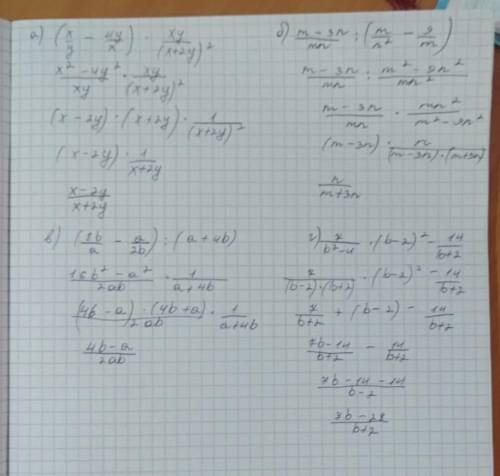 а) (x/y - 4y/x) · xy/(x+2y)²
x² - 4y²/xy · xy/(x+2y)²
(x - 2y) · (x + 2y) · 1/(x+2y)²
(x - 2y) · 1/x+2y
x-2y/x+2y
б) m - 3n/mn : (m/n² - 9/m)
m - 3n/mn : m² - 9n²/mn²
m - 3n/mn · mn²/m² - 9n²
(m-3n) · n/(m-3n) · (m+3n)
n/m+3n
в) (8b/a - a/2b) : (a + 4b)
16b² - a²/2ab · 1/a+4b
(4b - a) · (4b + a)/2ab · 1/a+4b
4b - a/2ab
г) 7/b²-4 · (b-2)² - 14/b+2
7/(b-2) · (b+2) · (b-2)² - 14/b+2
7/b+2 + (b-2) - 14/b+2
7b-14/b+2 - 14/b+2
7b - 14 - 14/b-2
7b-28/b+2